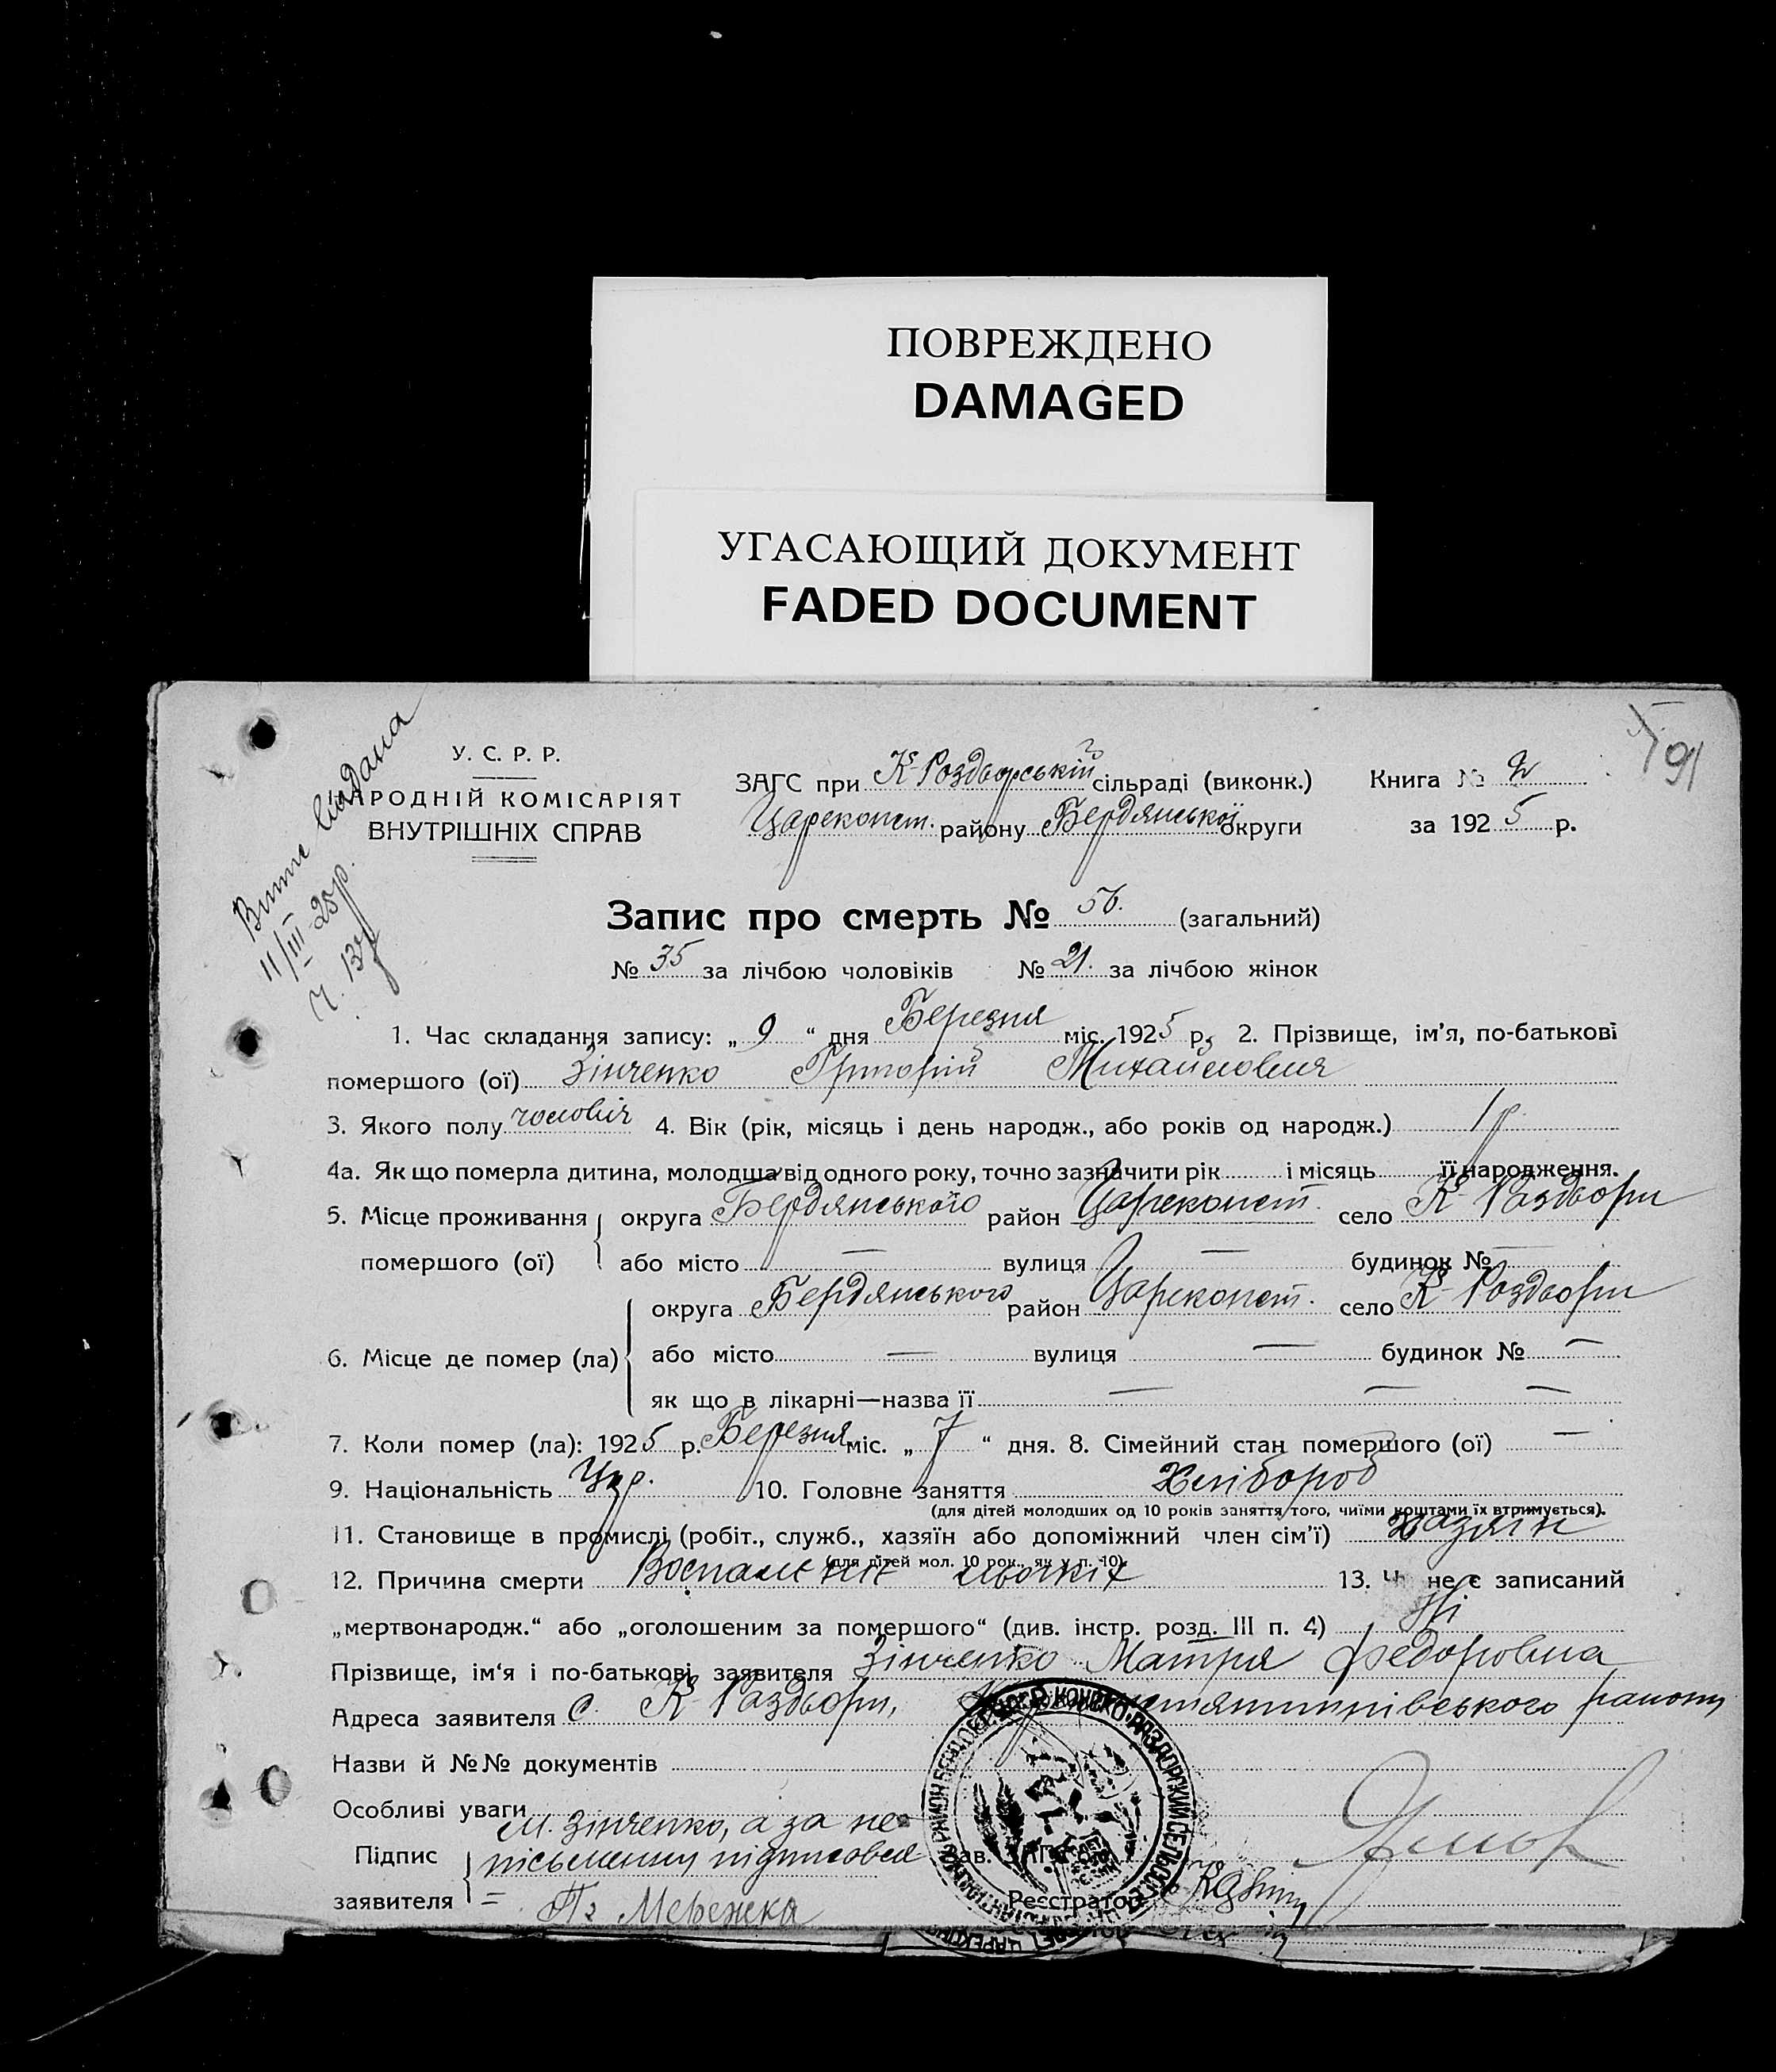 ПОВРЕЖДЕНО
DAMAGED
УГАСАЮЩИЙ ДОКУМЕНТ
FADED DOCUMENT
91
Витт видана
11/III 25р.
Ч. 137
У. С. Р. Р.
НАРОДНІЙ КОМІСАРІЯТ
ВНУТРІШНІХ СПРАВ
ЗАГС при К-Роздорській сільраді (виконк.) Книга № 2
Цареконст. району Бердянської округи за 1925 р.
Запис про смерть № 56. (загальний)
№ 35 за лічбою чоловіків № 21. за лічбою жінок
1. Час складання запису: „ 9 “ дня Березня міс. 1925 р. 2. Прізвище, ім’я, по-батькові
помершого (ої) Зінченко Григорій Михайлович
3. Якого полу чоловіч 4. Вік (рік, місяць і день народж., або років од народж.) 1 р.
4а. Як що померла дитина, молодша від одного року, точно зазначити рік і місяць її народження.
5. Місце проживання округа Бердянського район Цареконст. село К-Роздори
помершого (ої) або місто — вулиця — будинок № —
округа Бердянського район Цареконст. село К-Роздори
6. Місце де помер (ла) або місто — вулиця — будинок № —
як що в лікарні—назва її — — —
7. Коли помер (ла): 1925 р. Березня міс. „ 7 “ дня. 8. Сімейний стан помершого (ої) —
9. Національність Укр. 10. Головне заняття Хлібороб
(для дітей молодших од 10 років заняття того, чиїми коштами їх втримується).
11. Становище в промислі (робіт., служб., хазяїн або допоміжний член сім’ї) хазяін
(для дітей мол. 10 рок., як у п. 10)
12. Причина смерти Воспаленіє льогкіх 13. Чи не є записаний
„мертвонародж.“ або „оголошеним за помершого“ (див. інстр. розд. III п. 4) Ні
Прізвище, ім‘я і по-батькові заявителя Зінченко Мотря Федоровна
Адреса заявителя с. К-Роздори, району
Назви й №№ документів
Особливі уваги
М. Зінченко, а за не-
Підпис письменну підписовся
заявителя =
Зав. ЗАГС'ом
Реєстратор